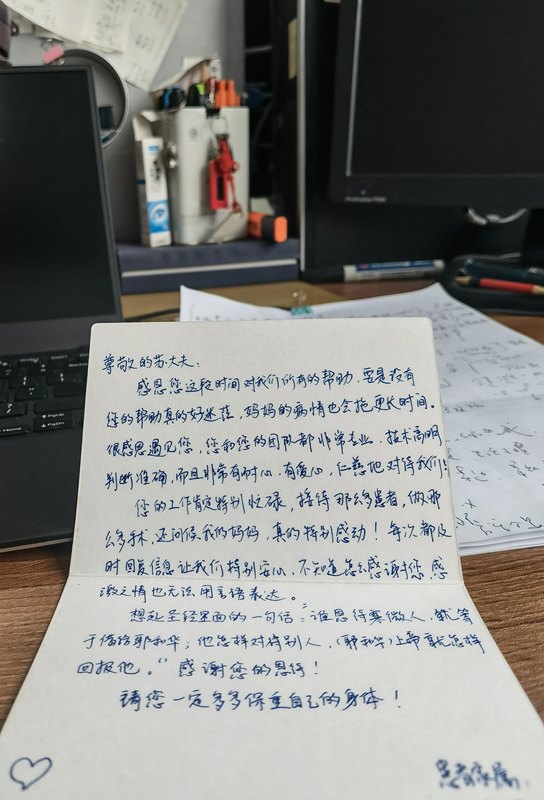 尊敬的苏大夫：
感恩您这段时间对我们所有的帮助，要是没有
您的帮助真的好迷茫，妈妈的病情也会拖更长时间。
很感恩遇见您，您和您的团队都非常专业，技术高明
判断准确，而且非常有耐心，有爱心，仁慈地对待我们！
您的工作肯定特别忙碌，接待那么多患者，做那
么多手术，还问候我的妈妈，真的特别感动！每次都及
时回复信息让我们特别安心，不知道怎么感谢您，感
激之情也无法用言语表达。
想起圣经里面的一句话："谁恩待卑微人，就等
于借给耶和华；他怎样对待别人，（耶和华）上帝就怎样
回报他。"感谢您的恩待！
请您一定多多保重自己的身体！
患者家属：